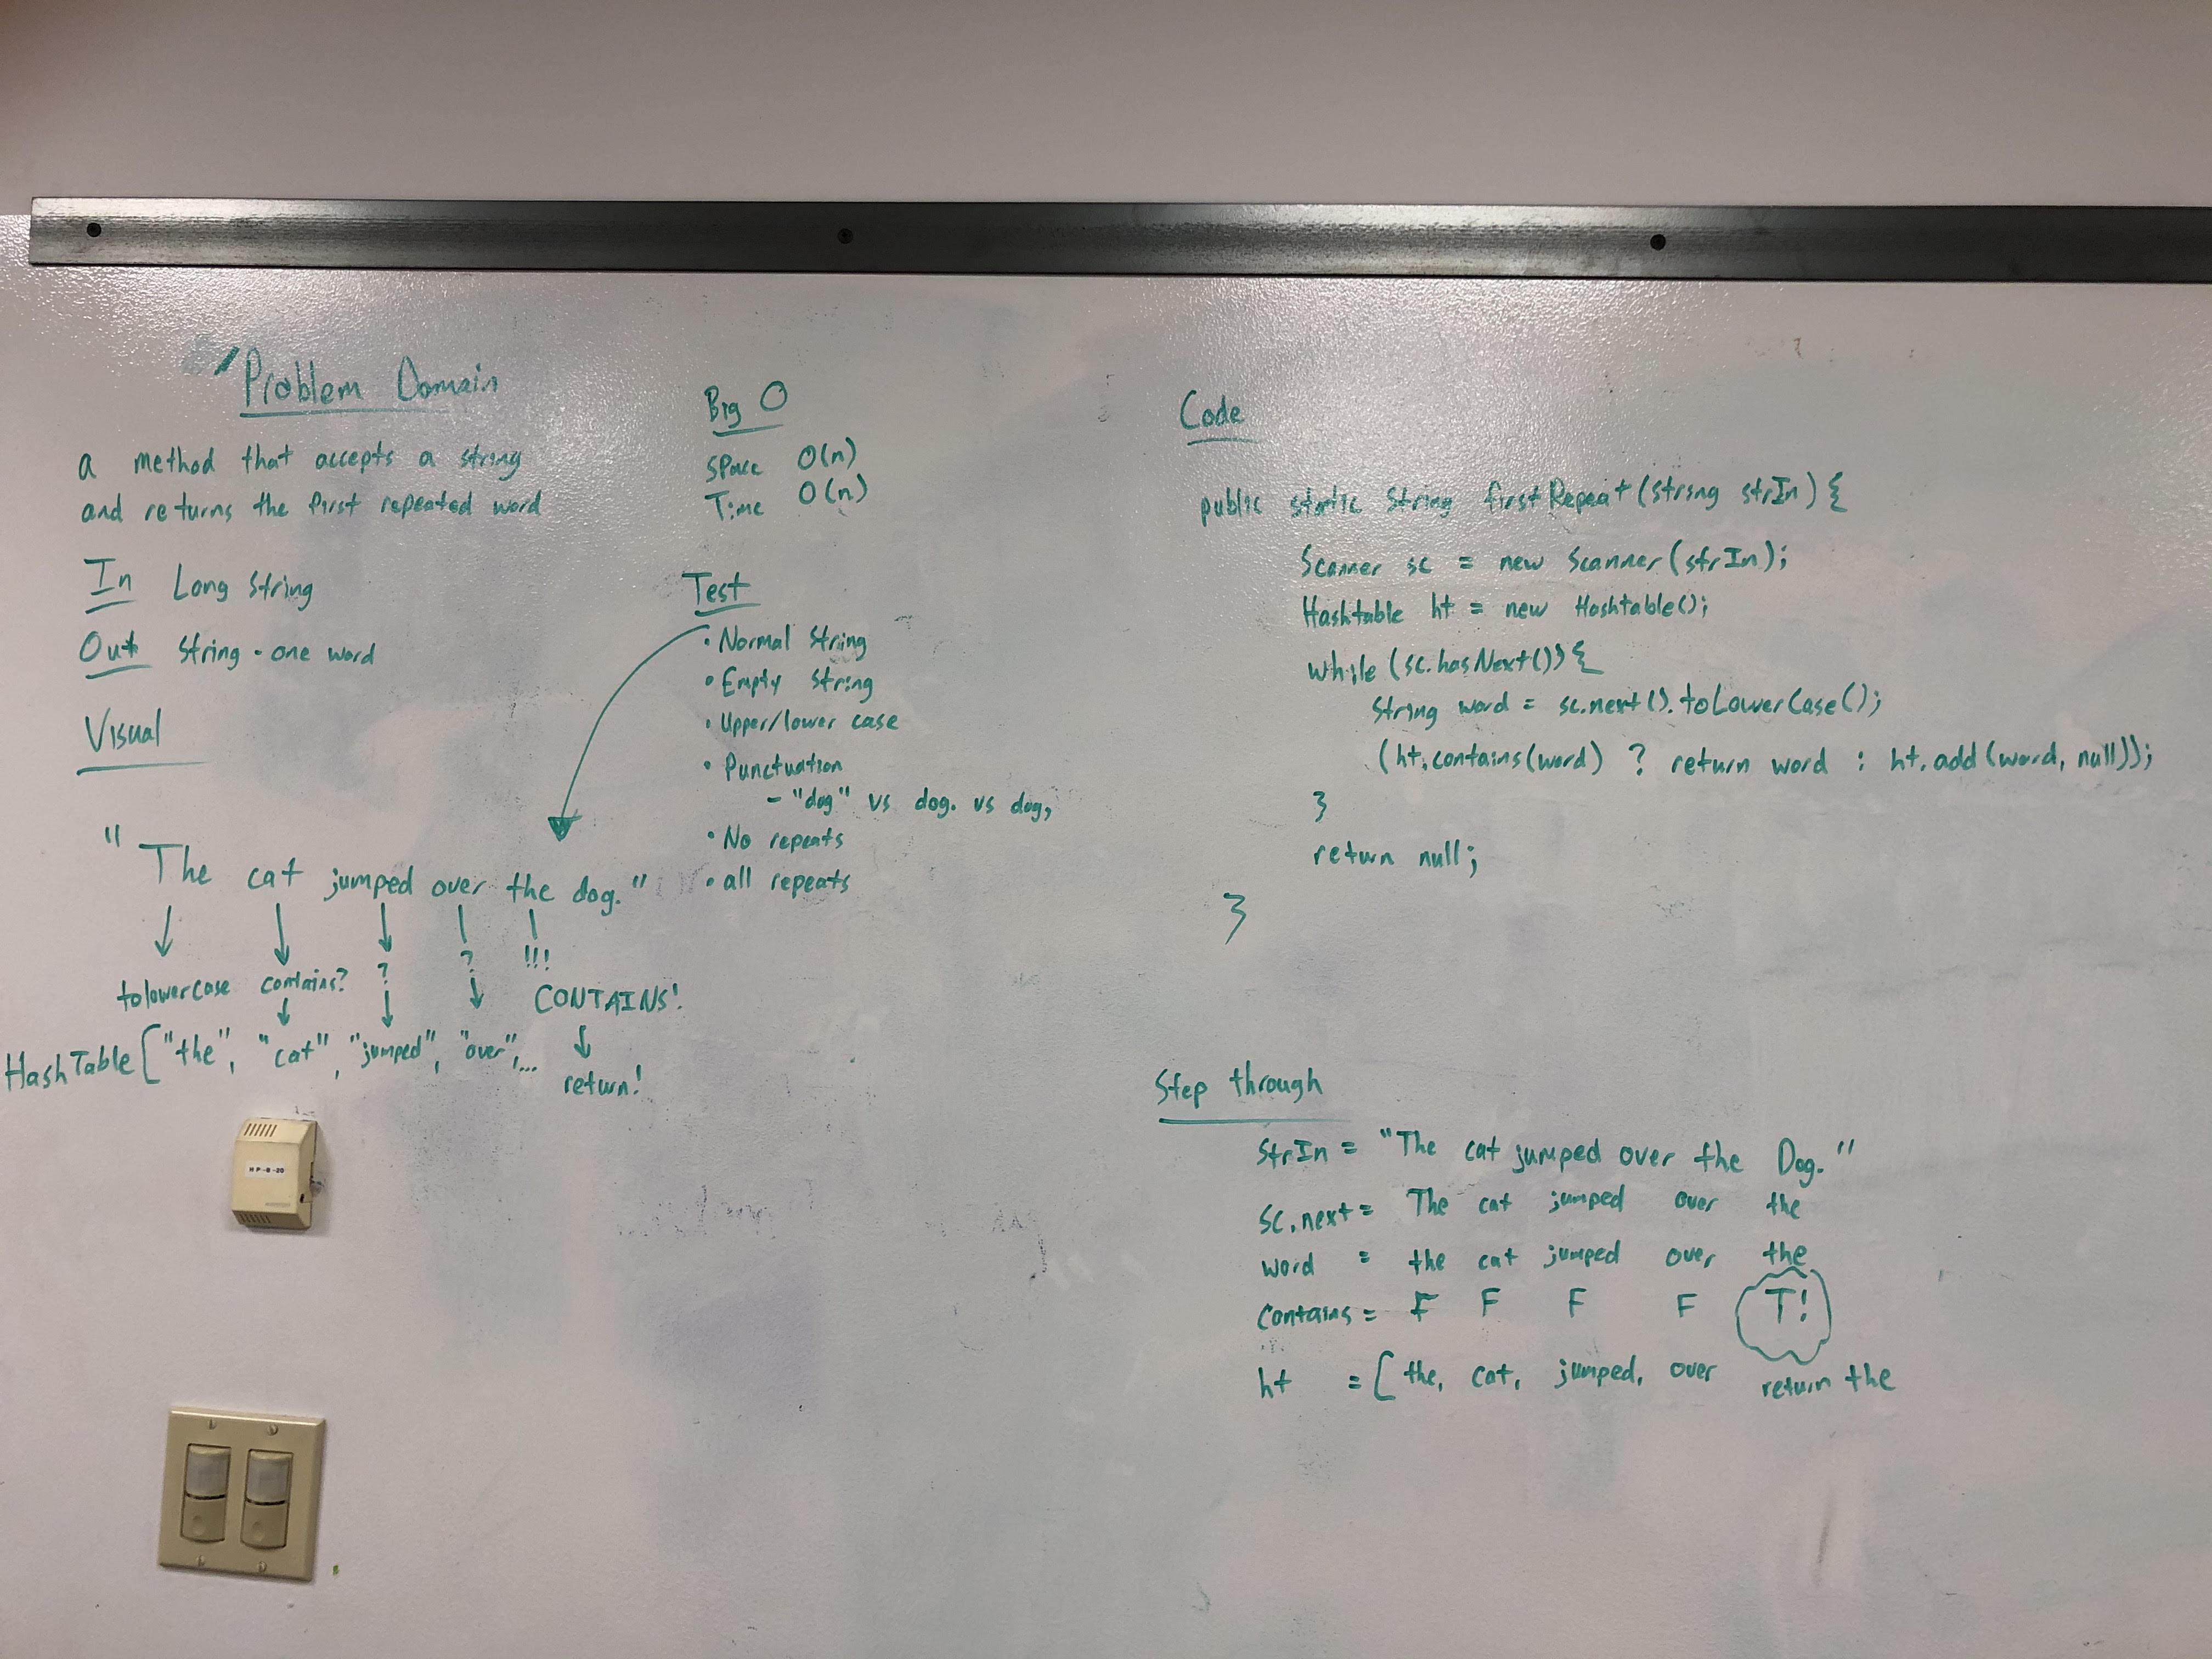 Problem Domain
a method that accepts a string
and returns the first repeated word
In Long String
Out String - one word
Visual
"The cat jumped over the dog."
tolowercase contains? ? ? !!!
CONTAINS!
HashTable ["the", "cat", "jumped", "over",...
return!
HP-8-20
Big O
Space O(n)
Time O(n)
Test
• Normal String
• Empty String
• Upper/lower case
• Punctuation
- "dog" vs dog. vs dog,
• No repeats
• all repeats
Code
public static String firstRepeat(String strIn) {
Scanner sc = new Scanner(strIn);
Hashtable ht = new Hashtable();
while (sc.hasNext()) {
String word = sc.next().toLowerCase();
(ht.contains(word) ? return word : ht.add(word, null));
}
return null;
}
Step through
StrIn = "The cat jumped over the Dog."
Sc.next = The cat jumped over the
word = the cat jumped over the
Contains = F F F F T!
ht = [ the, cat, jumped, over return the